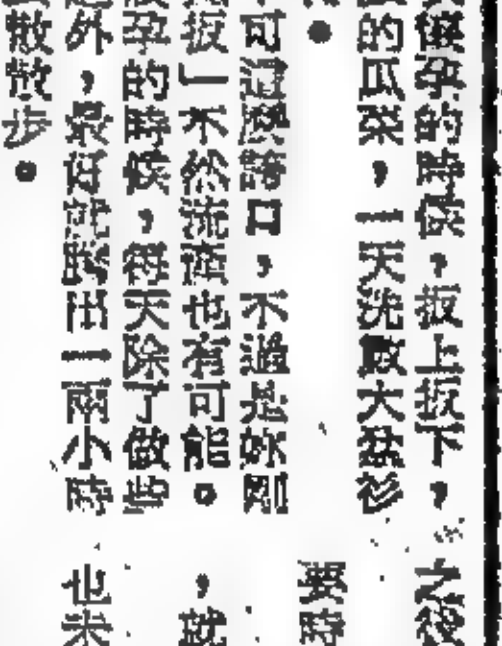 懷孕的時候，扳上扳下，
的瓜菜，一天洗數大盆衫
。
可誇口，不過是妳剛
扳」不然流產也有可能。
孕的時候，每天除了做些
外，最好就出一兩小時
散散步。
之後
要時
，就
也未